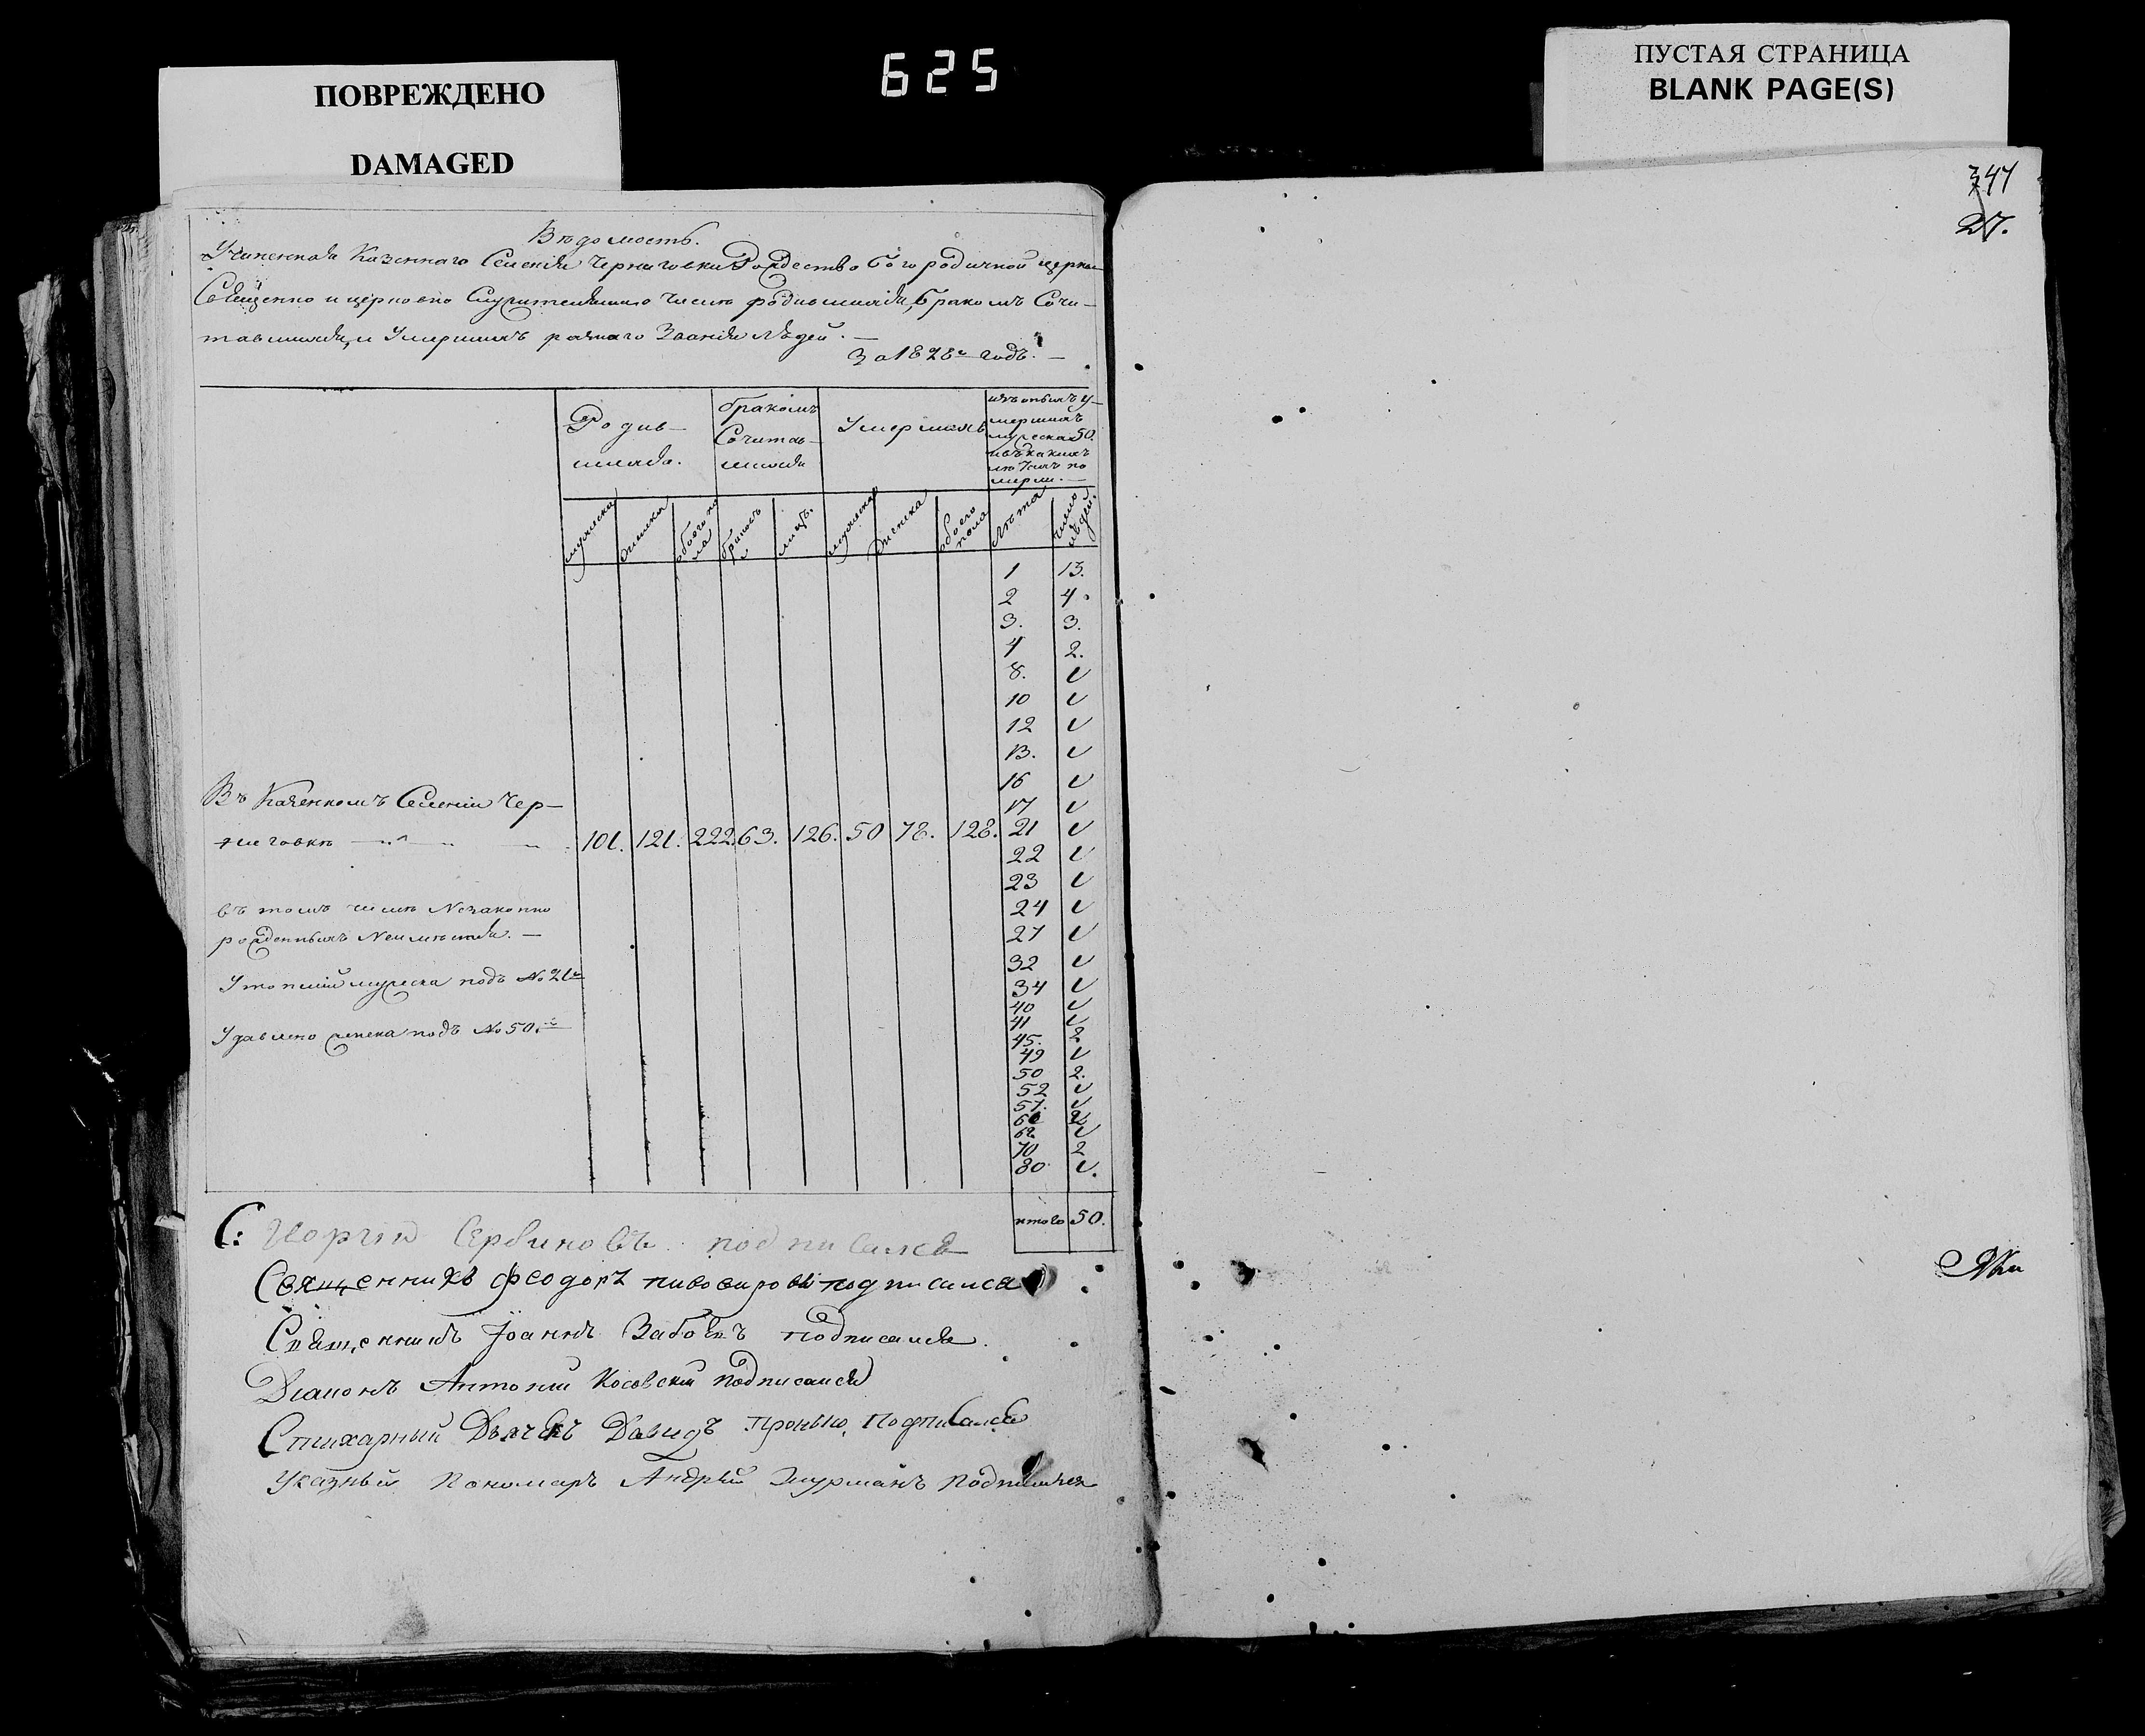 625
ПОВРЕЖДЕНО
DAMAGED
ПУСТАЯ СТРАНИЦА
BLANK PAGE(S)
Вѣдомость.
Учиненная Казеннаго Селенія Черниговки Рождество богородичной церкви
Священно и церковно Служителями о числѣ родившихся, бракомъ Сочи-
тавшихся, и Умершихъ разнаго Званія людей. —
За 1828й годъ. —
Родив-
шихся.
бракомъ
Сочитав-
шихся
Умершихъ
изъ оныхъ у-
мершихъ
мужеска 50.
въ какихъ
лѣтахъ по
мерли. —
мужеска
женска
обоего по
ла
браковъ
лицъ.
мужеска
женска
обоего
пола
лѣта
число
людей.
1 13.
2 4.
3. 3.
4 2.
8. 1
10 1
12 1
13. 1
16 1
17 1
Въ Казенномъ Селеніи Чер-
ниговкѣ 101. 121. 222. 63. 126. 50 78. 128. 21 1
22 1
23 1
24 1
27 1
32 1
34 1
40 1
41 1
45. 2
49 1
50 2.
52 1
57. 1
70 2
80 1.
въ томъ числѣ Незаконно
рожденныхъ Неимѣется. —
Утопшій мужеска подъ № 21м
Удавлено женска подъ № 50.м
итого 50.
С: подписался
Священникъ Феодоръ подписался
Священникъ Іоаннъ подписался.
Діаконъ Антоній Косовскій подписался
Стихарный Дьячекъ Давидъ Пронько, подписался
Указный Пономарь Андрей подписался
27.